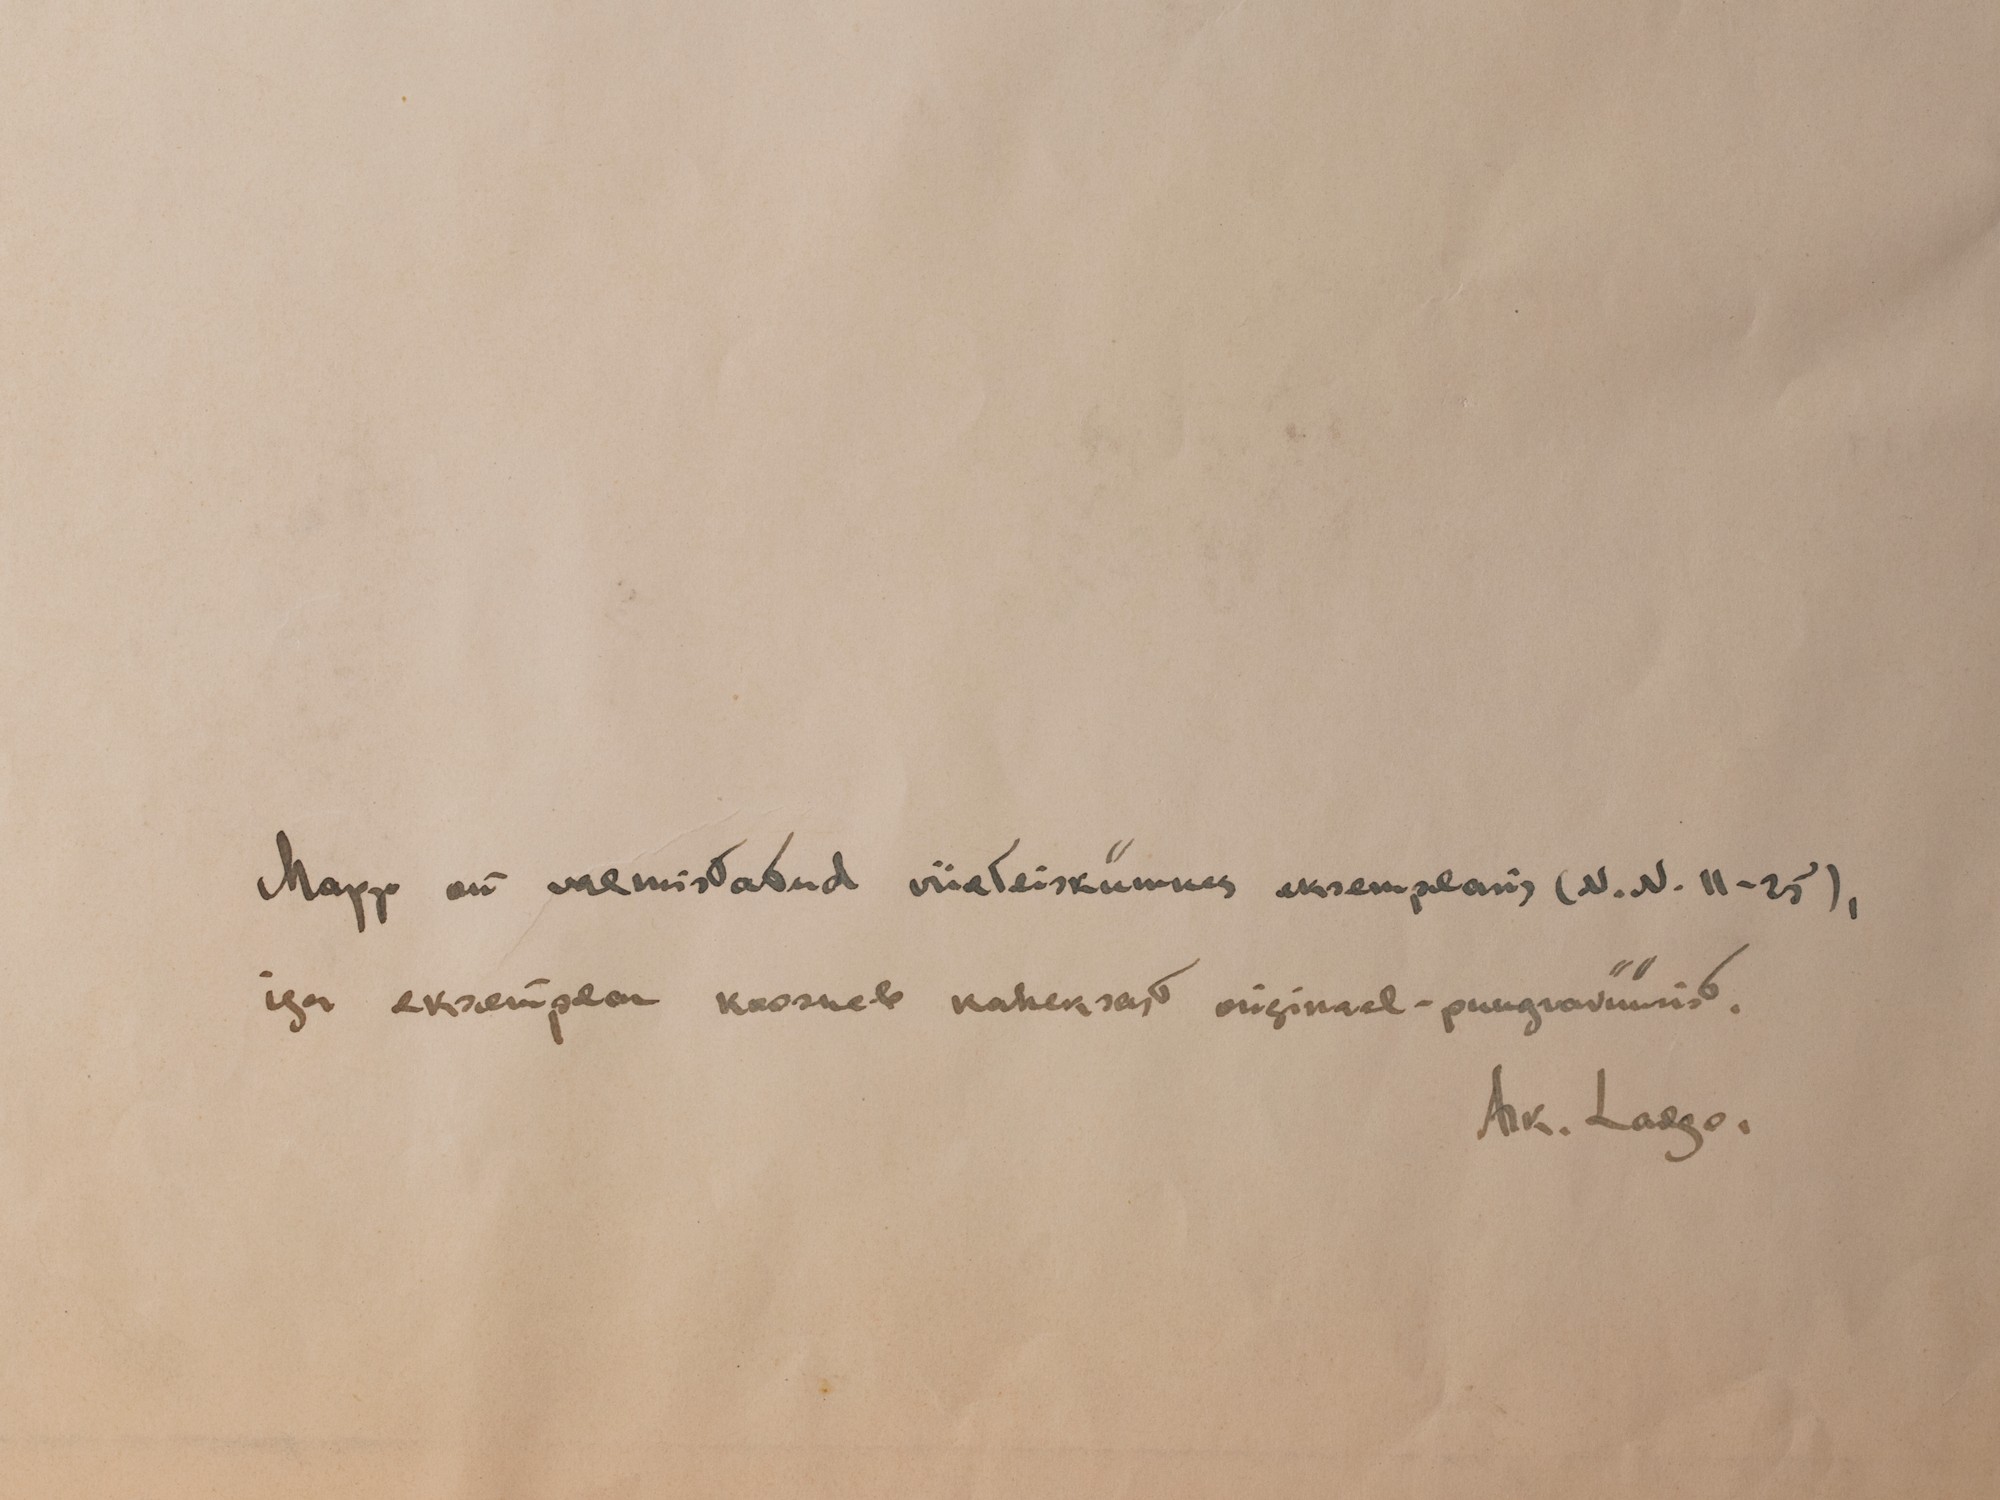 Mapp on valmistatud viieteiskümnes eksemplaris (N.N. 11-25),
iga eksemplar koosneb kaheksast originaal-puugravüürist.
Ark. Laigo.